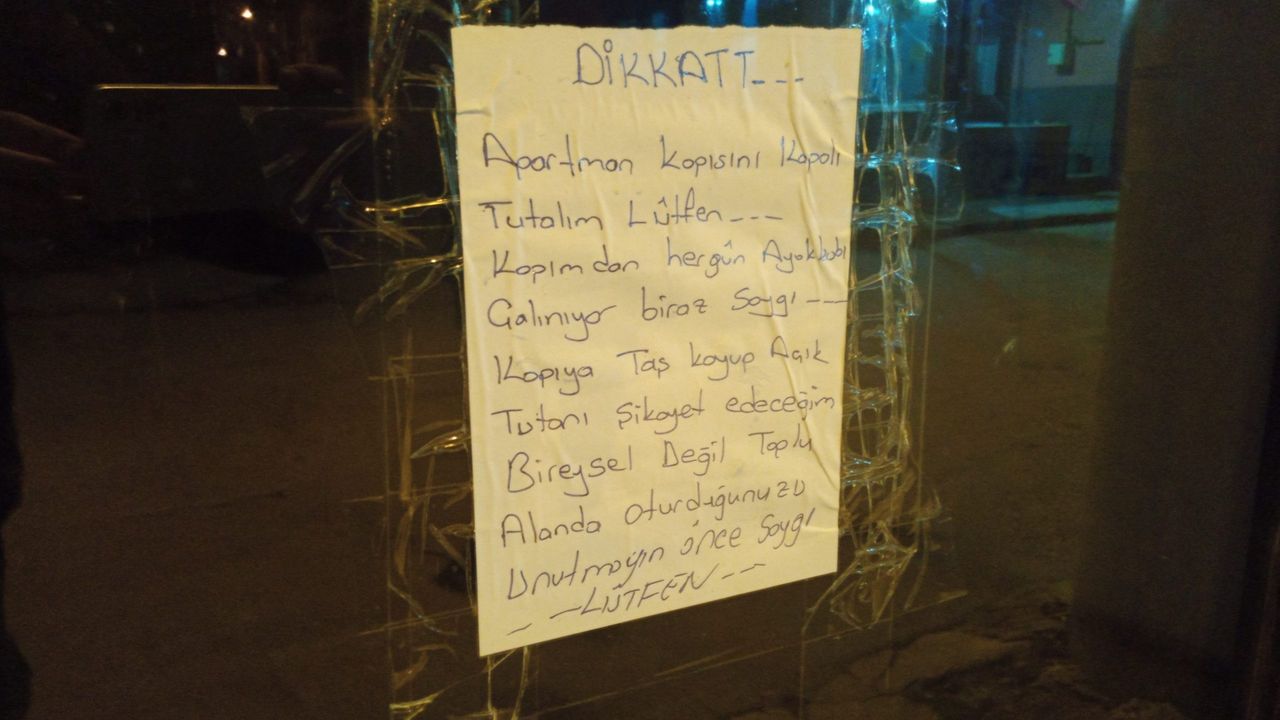 DİKKATT---
Apartman kapısını kapalı
Tutalım Lütfen---
Kapımdan hergün Ayakkabı
Çalınıyor biraz Saygı---
Kapıya Taş koyup Açık
Tutanı şikayet edeceğim
Bireysel Değil Toplu
Alanda oturduğunuzu
Unutmayın önce Saygı
--LÜTFEN--